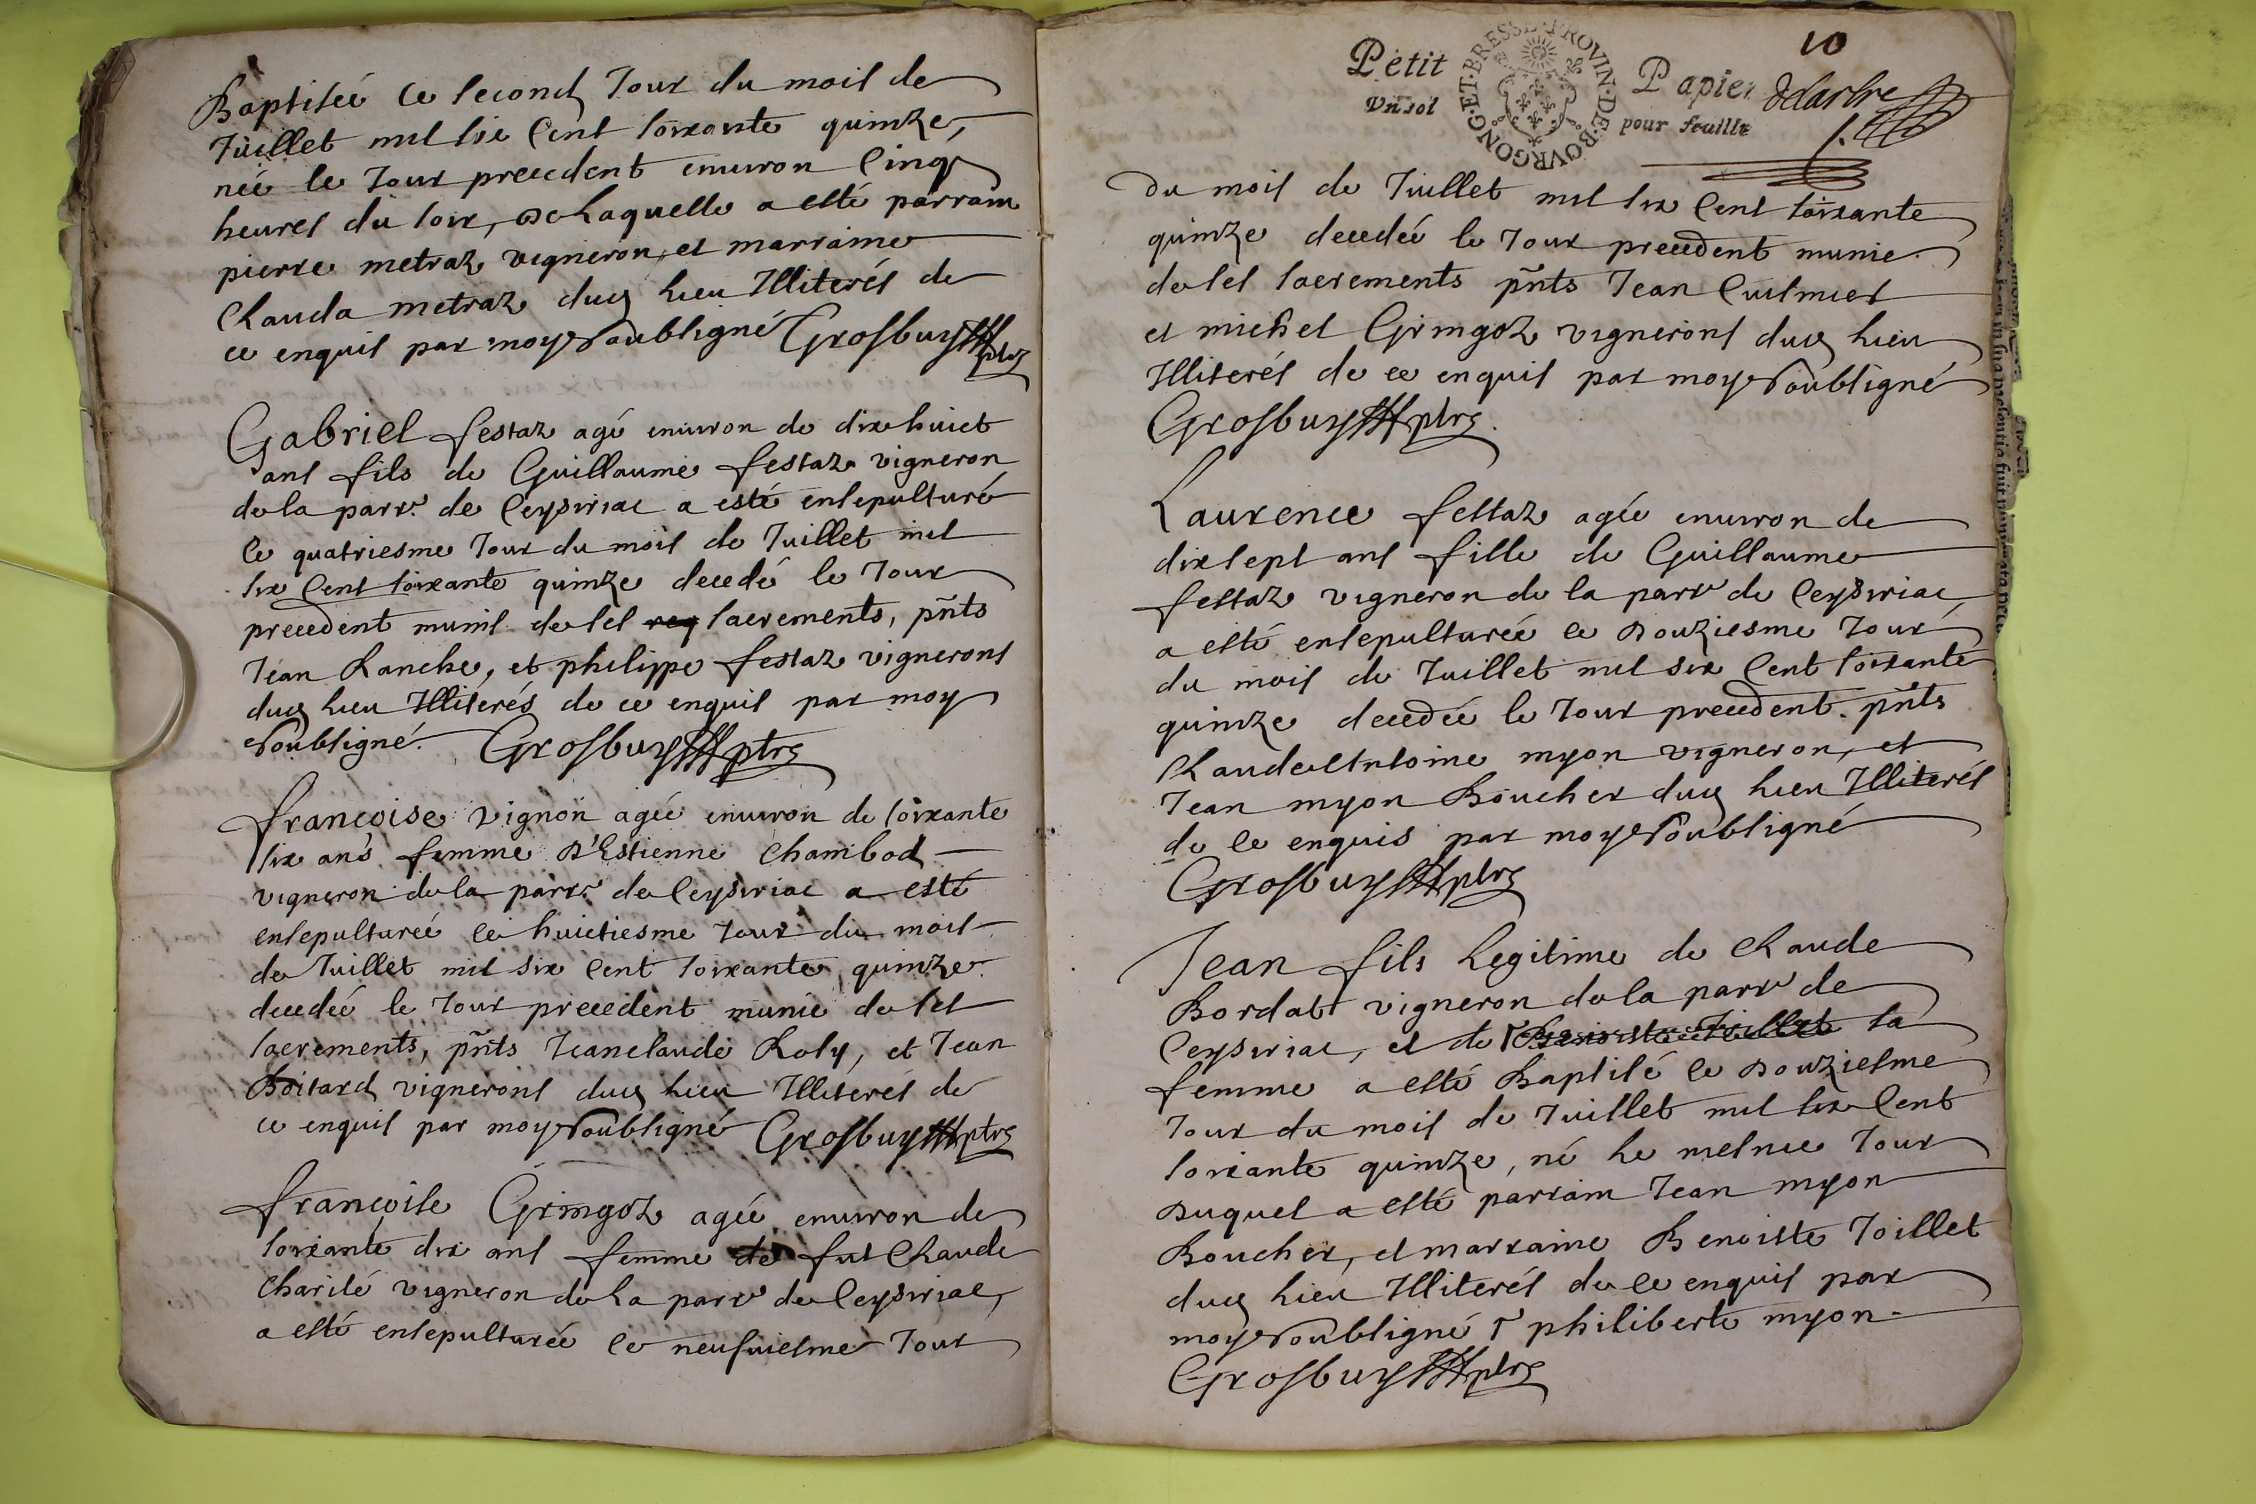 Baptisée ce second Jour du mois de
Juillet mil six Cent soixante quinze,
née le Jour precedent enuiron Cinq
heures du soir, de Laquelle a esté parrain
pierre metraz vigneron, et marraine
Clauda metraz dud. lieu Illiterés de
ce enquis par moy Soubsigné Grosbuy ptre
Gabriel festaz agé enuiron de dix huict
ans fils de Guillaume festaz vigneron
de la parr. de Ceysiriac a esté ensepulturé
le quatriesme Jour du mois de Juillet mil
six Cent soixante quinze decedé le Jour
precedent munis de ses sacrements, pñts
Jean Ranche, et philippe festaz vignerons
dud. lieu Illiterés de ce enquis par moy
Soubsigné. Grosbuy ptre
françoise vignon agée enuiron de soixante
six ans femme d'Estienne Chambod
vigneron de la parr. de Ceysiriac a esté
ensepulturée le huictiesme Jour du mois
de Juillet mil six Cent soixante quinze
decedée le Jour precedent munie de ses
sacrements, pñts Jeanclaude Roly, et Jean
Boitard vignerons dud. lieu Illiterés de
ce enquis par moy Soubsigné Grosbuy ptre
françoise Gringoz agée enuiron de
soixante dix ans femme de fut Claude
Charité vigneron de La parr. de Ceysiriac,
a esté ensepulturée le neufuiesme Jour
10
Petit Papier
Vn sol pour feuille
BOVRGONG·ET·BRESSE·PROVIN·DE·
Delarbre
du mois de Juillet mil six Cent soixante
quinze decedée le Jour precedent munie
de ses sacrements pñts Jean Cuilmier
et michel Gringoz vignerons dud. lieu
Illiterés de ce enquis par moy Soubsigné
Grosbuy ptre
Laurence festaz agée enuiron de
dixsept ans fille de Guillaume
festaz vigneron de la parr. de Ceysiriac
a esté ensepulturée le Douziesme Jour
du mois de Juillet mil six Cent soixante
quinze decedée le Jour precedent. pñts
Claude Antoine myon vigneron, et
Jean myon Boucher dud. lieu Illiterés
de ce enquis par moy Soubsigné
Grosbuy ptre
Jean fils Legitime de Claude
Bordat vigneron de la parr. de
Ceysiriac, et de Γ Benoiste Joillet sa
femme a esté Baptisé le Douziesme
Jour du mois de Juillet mil six Cent
soixante quinze, né Le mesme Jour
Duquel a esté parrain Jean myon
Boucher, et marraine Benoiste Joillet
dud. lieu Illiterés de ce enquis par
moy Soubsigné Γ philiberte myon
Grosbuy ptre